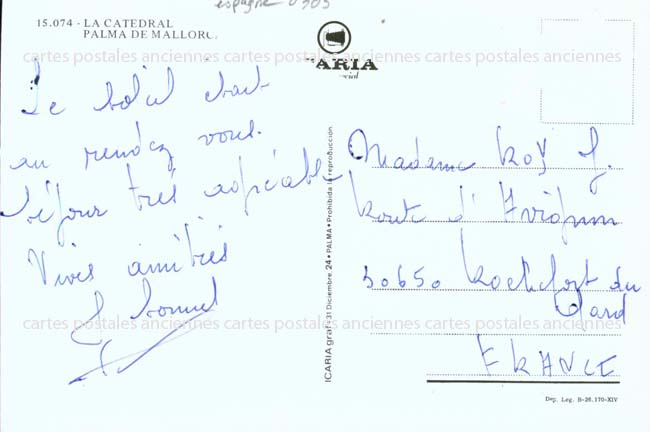 espagne 0303
15.074 - LA CATEDRAL
PALMA DE MALLORC
ARIA
cartes postales anciennes cartes postales anciennes cartes postales anciennes
Le soleil était
au rendez vous.
Séjour très agréable
Vives amitiés
ICARIA graf • 31 Diciembre, 24 • PALMA • Prohibida la reproducción
Madame Roy J.
Route d'Avignon
30650 Rochefort du
Gard
FRANCE
cartes postales anciennes cartes postales anciennes cartes postales anciennes
Dep. Leg. B-26.170-XIV